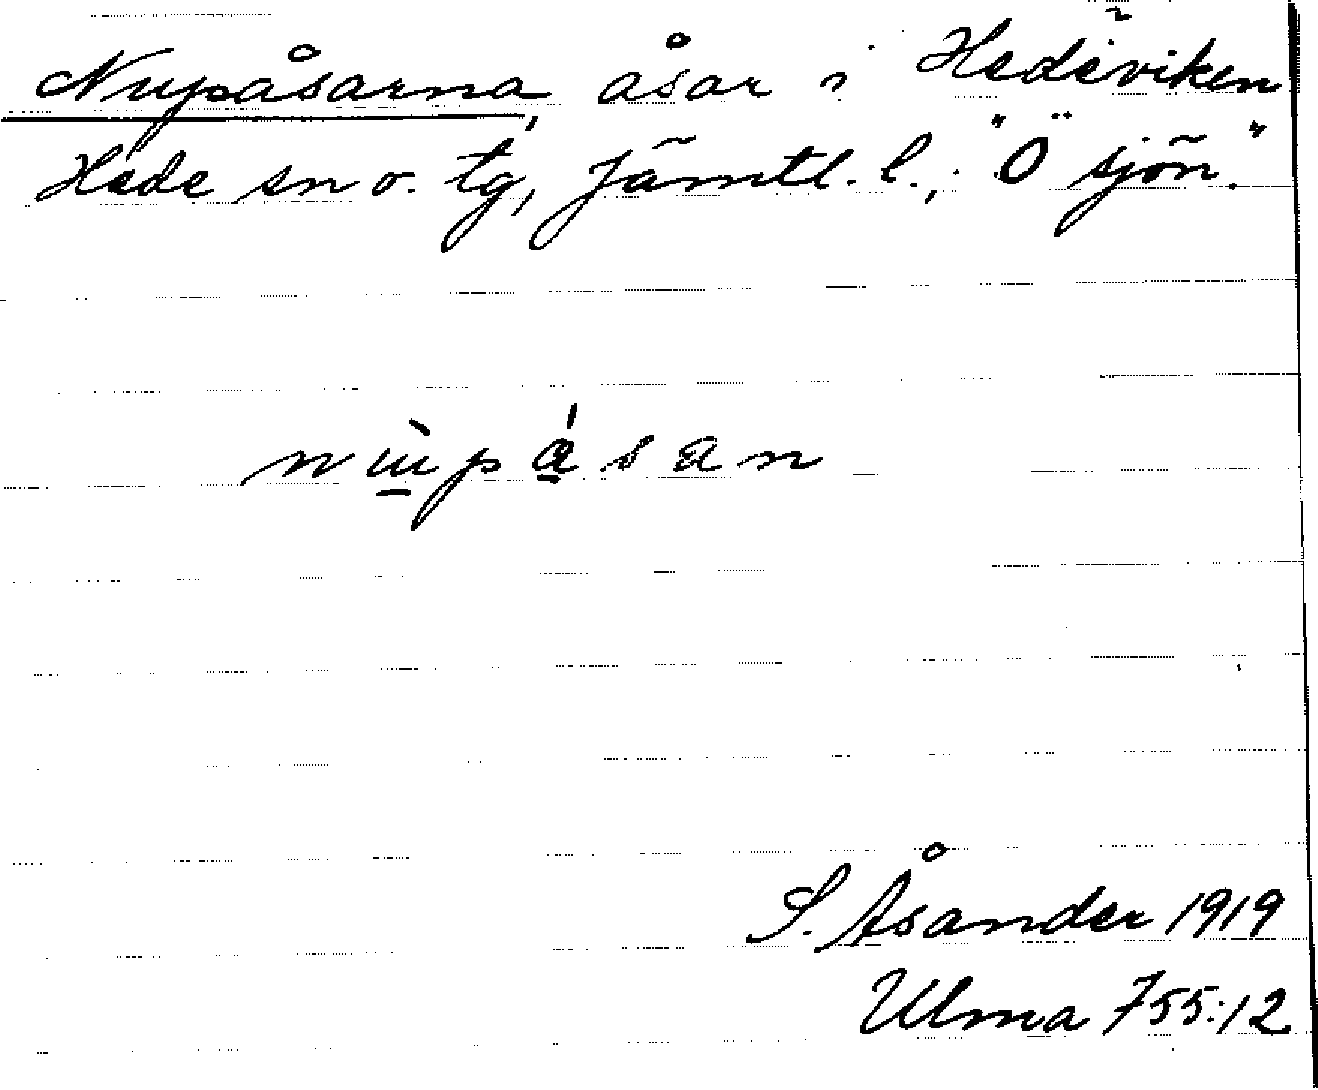 Nupåsarna, åsar i Hedeviken
Hede sn o. tg, Jämtl. l.; "Ö sjön."
nùpásan
S. Åsander 1919
Ulma 755:12